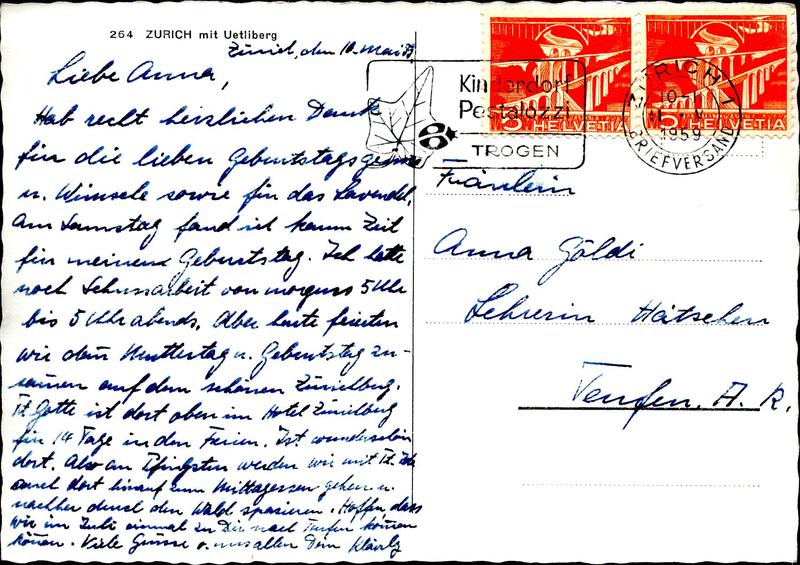 264 ZURICH mit Uetliberg
Zürich, den 10. Mai 59
Liebe Anna,
Hab recht herzlichen Dank
für die lieben Geburtstagsgrüsse
u. Wünsche sowie für das Lavendel.
Am Samstag fand ich kaum Zeit
für meinen Geburtstag. Ich hatte
noch Schussarbeit von morgens 5 Uhr
bis 5 Uhr abends. Aber heute feierten
wir dann Muttertag u. Geburtstag zu-
samen auf dem schönen Zürichberg.
Gotte ist dort oben im Hotel Zürichberg
für 14 Tage in den Ferien. Ist wunderschön
dort. Also an Pfingsten werden wir mit
auch dort hinauf zum Mittagessen gehen u.
nachher durch den Wald spazieren. Hoffen dass
wir im Juli einmal zu Dir nach Teufen kommen
können. Viele Grüsse v. uns allen Dein
Kinderdorf
Pestalozzi
TROGEN
5 HELVETIA
5 HELVETIA
ZÜRICH 1
1959
BRIEFVERSAND
Fräulein
Anna Göldi
Lehrerin Hätschen
Teufen. A. R.